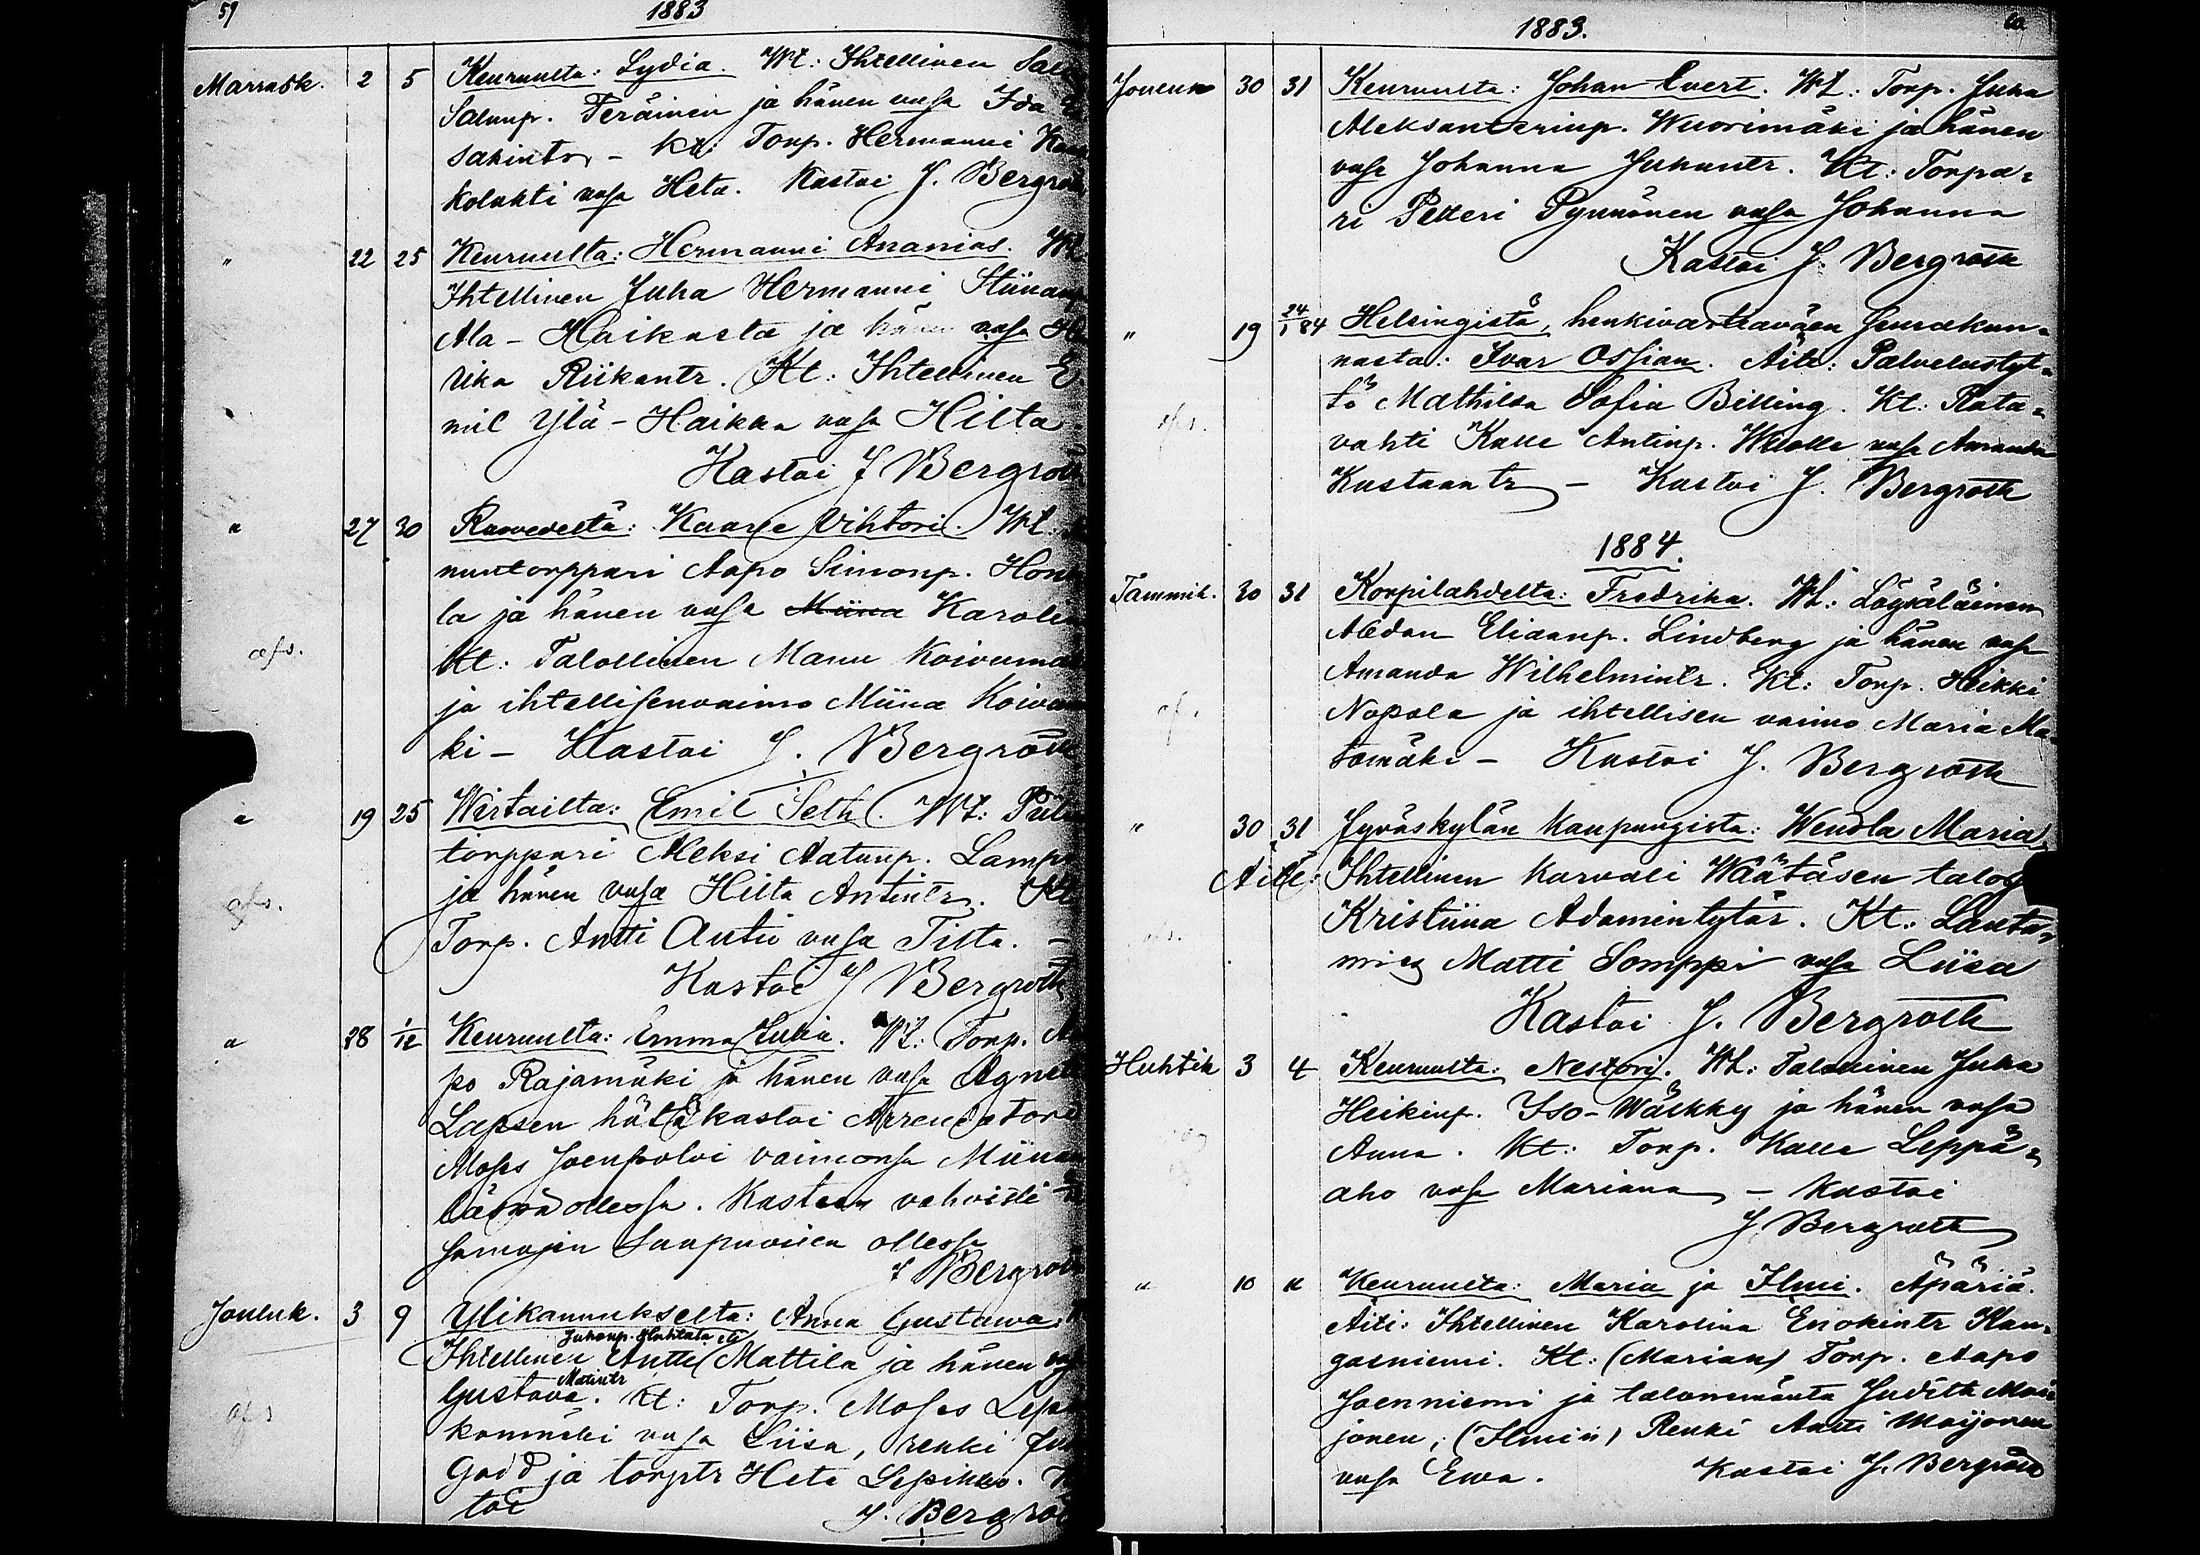 59
1883
Marrask. 2 5 Keuruulta: Lydia. Wt: Ihtellinen
Salomp. Peräinen ja hänen vsa Ida
sakintr - Kt: Torp. Hermanni
kolahti vsa Heta. Kastoi J. Bergroth
" 22 25 Keuruulta: Hermanni Ananias. Wt
Ihtellinen Juha Hermanni
Ala-Haikasta ja hänen vsa
rika Riikantr. Kt: Ihtellinen E.
mil Ylä-Haikka vsa Hilta
Kastoi J Bergroth
" 27 30 Ruovedeltä: Kaarle Vihtori. Wt:
muutorppari Aapo Simonp. Hon
la ja hänen vsa Miina Karolin
afs.
Kt: Talollinen Manu Koivumä
ja ihtellisenvaimo Miina Koivu
ki - Kastoi J. Bergroth
" 19 25 Wirtailta: Emil Seth. Wt:
torppari Aleksi Aatunp. Lamp
ja hänen vsa Hilta Antintr. Kt
afs.
Torp. Antti Autio vsa Tilta. -
Kastoi J Bergroth
" 28 1/12 Keuruulta: Emma Lydia. Wt: Torp. Aa
po Rajamäki ja hänen vsa Agneta
Lapsen hätäkastoi Arrendatori
Moses Joenpolvi vaimonsa Miinan
läsnä ollessa. Kasteen vahvisti
samojen saapuvilla ollessa
J Bergroth
Jouluk. 3 9 Ylikannukselta: Anna Gustawa.
Juhonp. Huhtala eli
Ihtellinen Antti Mattila ja hänen vsa
Matintr
Gustava. Kt: Torp. Moses Lepi
afs
komäki vsa Liisa, renki Juh
Gadd ja torptr Heta Lepikko. K
toi J. Bergroth
1883.
60
Jouluk 30 31 Keuruulta: Johan Evert. Wt: Torp. Juha
Aleksanterinp. Wuorimäki ja hänen
vsa Johanna Juhantr. Kt: Torpa-
ri Petteri Pynnönen vsa Johanna
Kastoi J. Bergroth
" 19 24/1 84 Helsingistä, henkivartiaväen seurakun-
nasta: Ivar Ossian. Äiti: Palvelustyt-
tö Mathilda Sofia Billing. Kt: Rata-
afs.
vahti Kalle Antinp. Wuolle vsa Amanda
Kustaantr - Kastoi J. Bergroth
1884.
Tammik. 30 31 Korpilahdelta: Fredrika. Wt: Löysäläinen
Aledan Eliaanp. Lindberg ja hänen vsa
Amanda Wilhelmintr. Kt: Torp. Heikki
af.
Nopola ja ihtellisen vaimo Maria Ma-
tomäki - Kastoi J. Bergroth
" 30 31 Jyväskylän kaupungista: Wendla Maria,
Äiti: Ihtellinen Karvali Wäätäsen talos
Kristiina Adamintytär. Kt: Lauta-
afs.
mies Matti Somppi vsa Liisa
Kastoi J. Bergroth
Huhtik 3 4 Keuruulta: Nestori. Wt: Talollinen Juha
Heikinp. Iso-Wälkky ja hänen vsa
Anna. Kt: Torp. Kalle Leppä-
aho vsa Mariana - Kastoi
J Bergroth
" 10 11 Keuruulta: Maria ja Ilmi. Äpäriä.
Äiti: Ihtellinen Karolina Enokintr Kan-
gasniemi. Kt: (Marian) Torp. Aapo
Joenniemi ja talonemäntä Judith Moi-
jonen, (Ilmin) Renki Antti Moijonen
vsa Ewa. Kastoi J. Bergroth